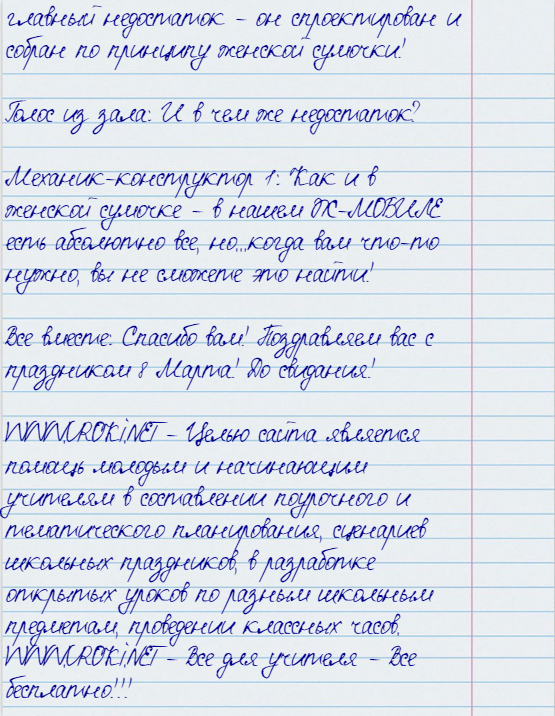 главный недостаток - он спроектирован и
собран по принципу женской сумочки!
Голос из зала: И в чем же недостаток?
Механик-конструктор 1: Как и в
женской сумочке - в нашем Ж-МОБИЛЕ
есть абсолютно все, но...когда вам что-то
нужно, вы не сможете это найти!
Все вместе: Спасибо вам! Поздравляем вас с
праздником 8 Марта! До свидания!
WWW.UROKI.NET - Целью сайта является
помощь молодым и начинающим
учителям в составлении поурочного и
тематического планирования, сценариев
школьных праздников, в разработке
открытых уроков по разным школьным
предметам, проведении классных часов.
WWW.UROKI.NET - Все для учителя - Все
бесплатно!!!